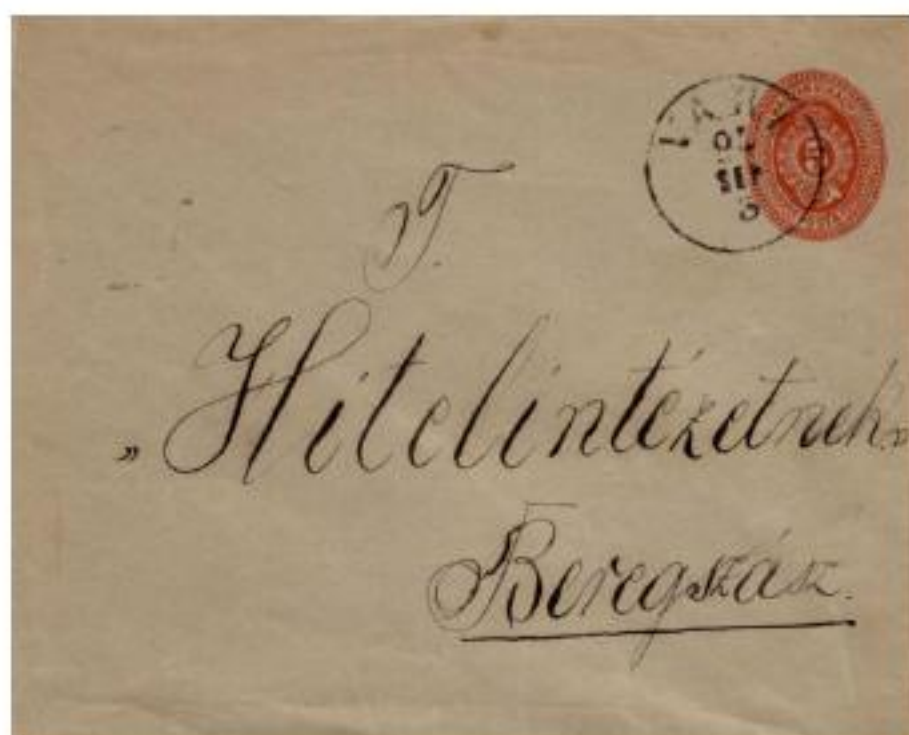 VÁRI
SEP
3
5
T.
„Hitelintézetnek”
Beregszász.